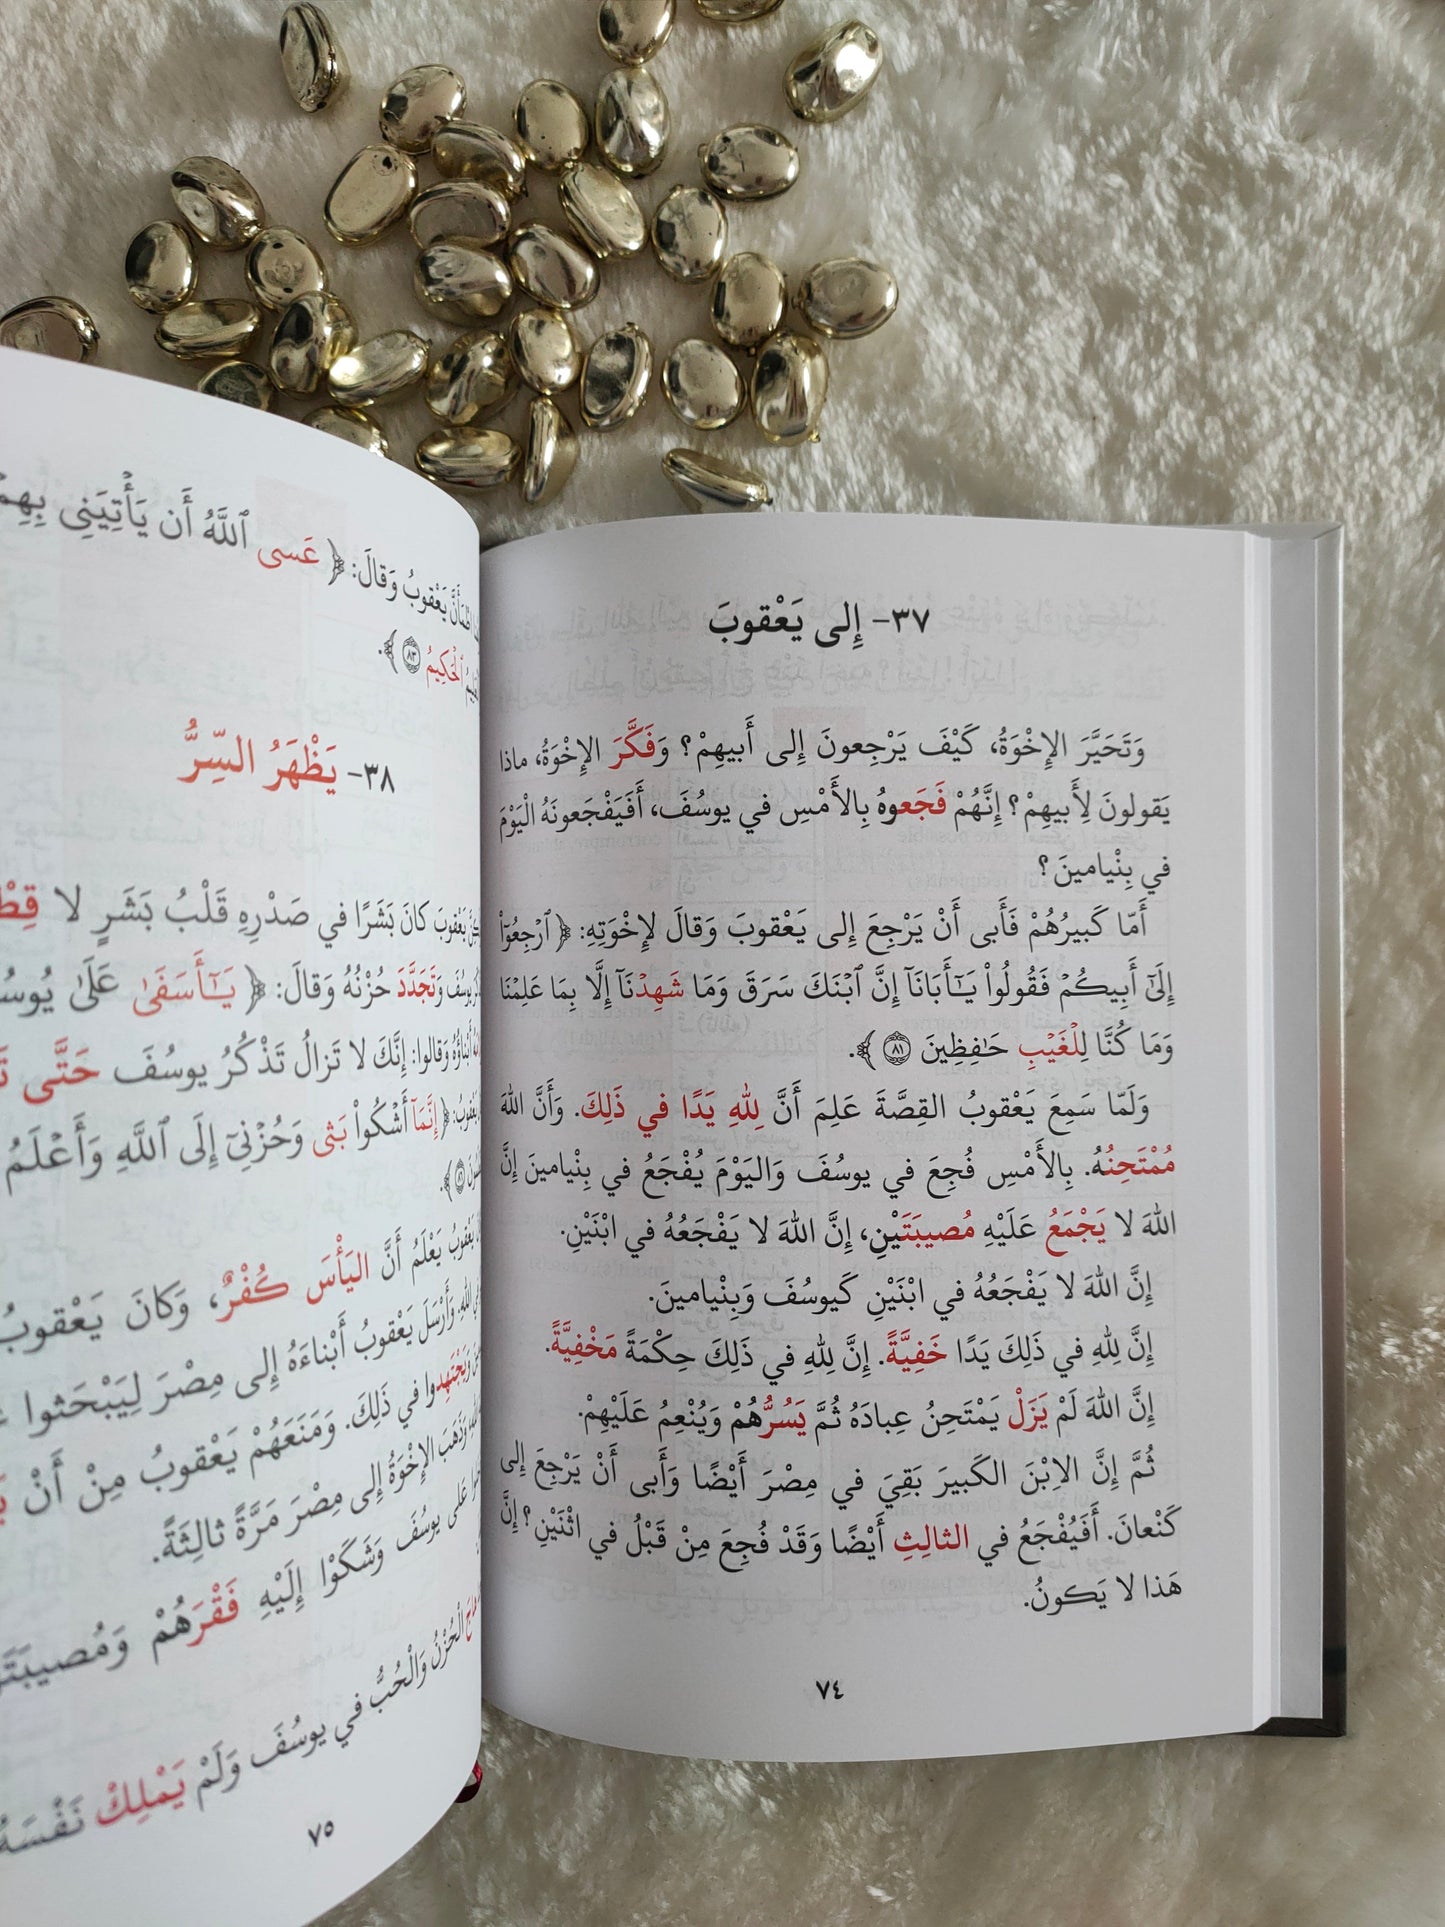 ٣٧- إِلى يَعْقوبَ
وَتَحَيَّرَ الإِخْوَةُ، كَيْفَ يَرْجِعونَ إِلى أَبيهِمْ؟ وَفَكَّرَ الإِخْوَةُ، ماذا
يَقولونَ لِأَبيهِمْ؟ إِنَّهُمْ فَجَعوهُ بِالأَمْسِ في يوسُفَ، أَفَيَفْجَعونَهُ الْيَوْمَ
في بِنْيامينَ؟
أَمّا كَبيرُهُمْ فَأَبى أَنْ يَرْجِعَ إِلى يَعْقوبَ وَقالَ لِإِخْوَتِهِ: ﴿ ٱرْجِعُوٓا۟
إِلَىٰٓ أَبِيكُمْ فَقُولُوا۟ يَـٰٓأَبَانَآ إِنَّ ٱبْنَكَ سَرَقَ وَمَا شَهِدْنَآ إِلَّا بِمَا عَلِمْنَا
وَمَا كُنَّا لِلْغَيْبِ حَـٰفِظِينَ ۝٨١ ﴾.
وَلَمّا سَمِعَ يَعْقوبُ القِصَّةَ عَلِمَ أَنَّ لِلهِ يَدًا في ذَلِكَ. وَأَنَّ اللهَ
مُمْتَحِنُهُ. بِالأَمْسِ فُجِعَ في يوسُفَ وَاليَوْمَ يُفْجَعُ في بِنْيامينَ إِنَّ
اللهَ لا يَجْمَعُ عَلَيْهِ مُصيبَتَيْنِ، إِنَّ اللهَ لا يَفْجَعُهُ في ابْنَيْنِ.
إِنَّ اللهَ لا يَفْجَعُهُ في ابْنَيْنِ كَيوسُفَ وَبِنْيامينَ.
إِنَّ لِلهِ في ذَلِكَ يَدًا خَفِيَّةً. إِنَّ لِلهِ في ذَلِكَ حِكْمَةً مَخْفِيَّةً.
إِنَّ اللهَ لَمْ يَزَلْ يَمْتَحِنُ عِبادَهُ ثُمَّ يَسُرُّهُمْ وَيُنْعِمُ عَلَيْهِمْ.
ثُمَّ إِنَّ الاِبْنَ الكَبيرَ بَقِيَ في مِصْرَ أَيْضًا وَأَبى أَنْ يَرْجِعَ إِلى
كَنْعانَ. أَفَيُفْجَعُ في الثالِثِ أَيْضًا وَقَدْ فُجِعَ مِنْ قَبْلُ في اثْنَيْنِ؟ إِنَّ
هَذا لا يَكونُ.
٧٤
يَعْقوبُ وَقالَ: ﴿ عَسى ٱللَّهُ أَن يَأْتِيَنِى بِهِمْ
ٱلْحَكِيمُ ۝٨٣ ﴾.
٣٨- يَظْهَرُ السِّرُّ
يَعْقوبَ كانَ بَشَرًا في صَدْرِهِ قَلْبُ بَشَرٍ لا
يوسُفَ وَتَجَدَّدَ حُزْنُهُ وَقالَ: ﴿ يَـٰٓأَسَفَىٰ عَلَىٰ
أَبْناؤُهُ وَقالوا: إِنَّكَ لا تَزالُ تَذْكُرُ يوسُفَ حَتَّى
﴿ إِنَّمَآ أَشْكُوا۟ بَثِّى وَحُزْنِىٓ إِلَى ٱللَّهِ وَأَعْلَمُ
يَعْقوبُ يَعْلَمُ أَنَّ اليَأْسَ كُفْرٌ، وَكانَ يَعْقوبُ
وَأَرْسَلَ يَعْقوبُ أَبْناءَهُ إِلى مِصْرَ لِيَبْحَثوا
وَيَجْتَهِدوا في ذَلِكَ. وَمَنَعَهُمْ يَعْقوبُ مِنْ أَنْ
وَذَهَبَ الإِخْوَةُ إِلى مِصْرَ مَرَّةً ثالِثَةً.
عَلى يوسُفَ وَشَكَوْا إِلَيْهِ فَقْرَهُمْ
الْحُزْنُ وَالْحُبُّ في يوسُفَ وَلَمْ يَمْلِكْ نَفْسَهُ
٧٥